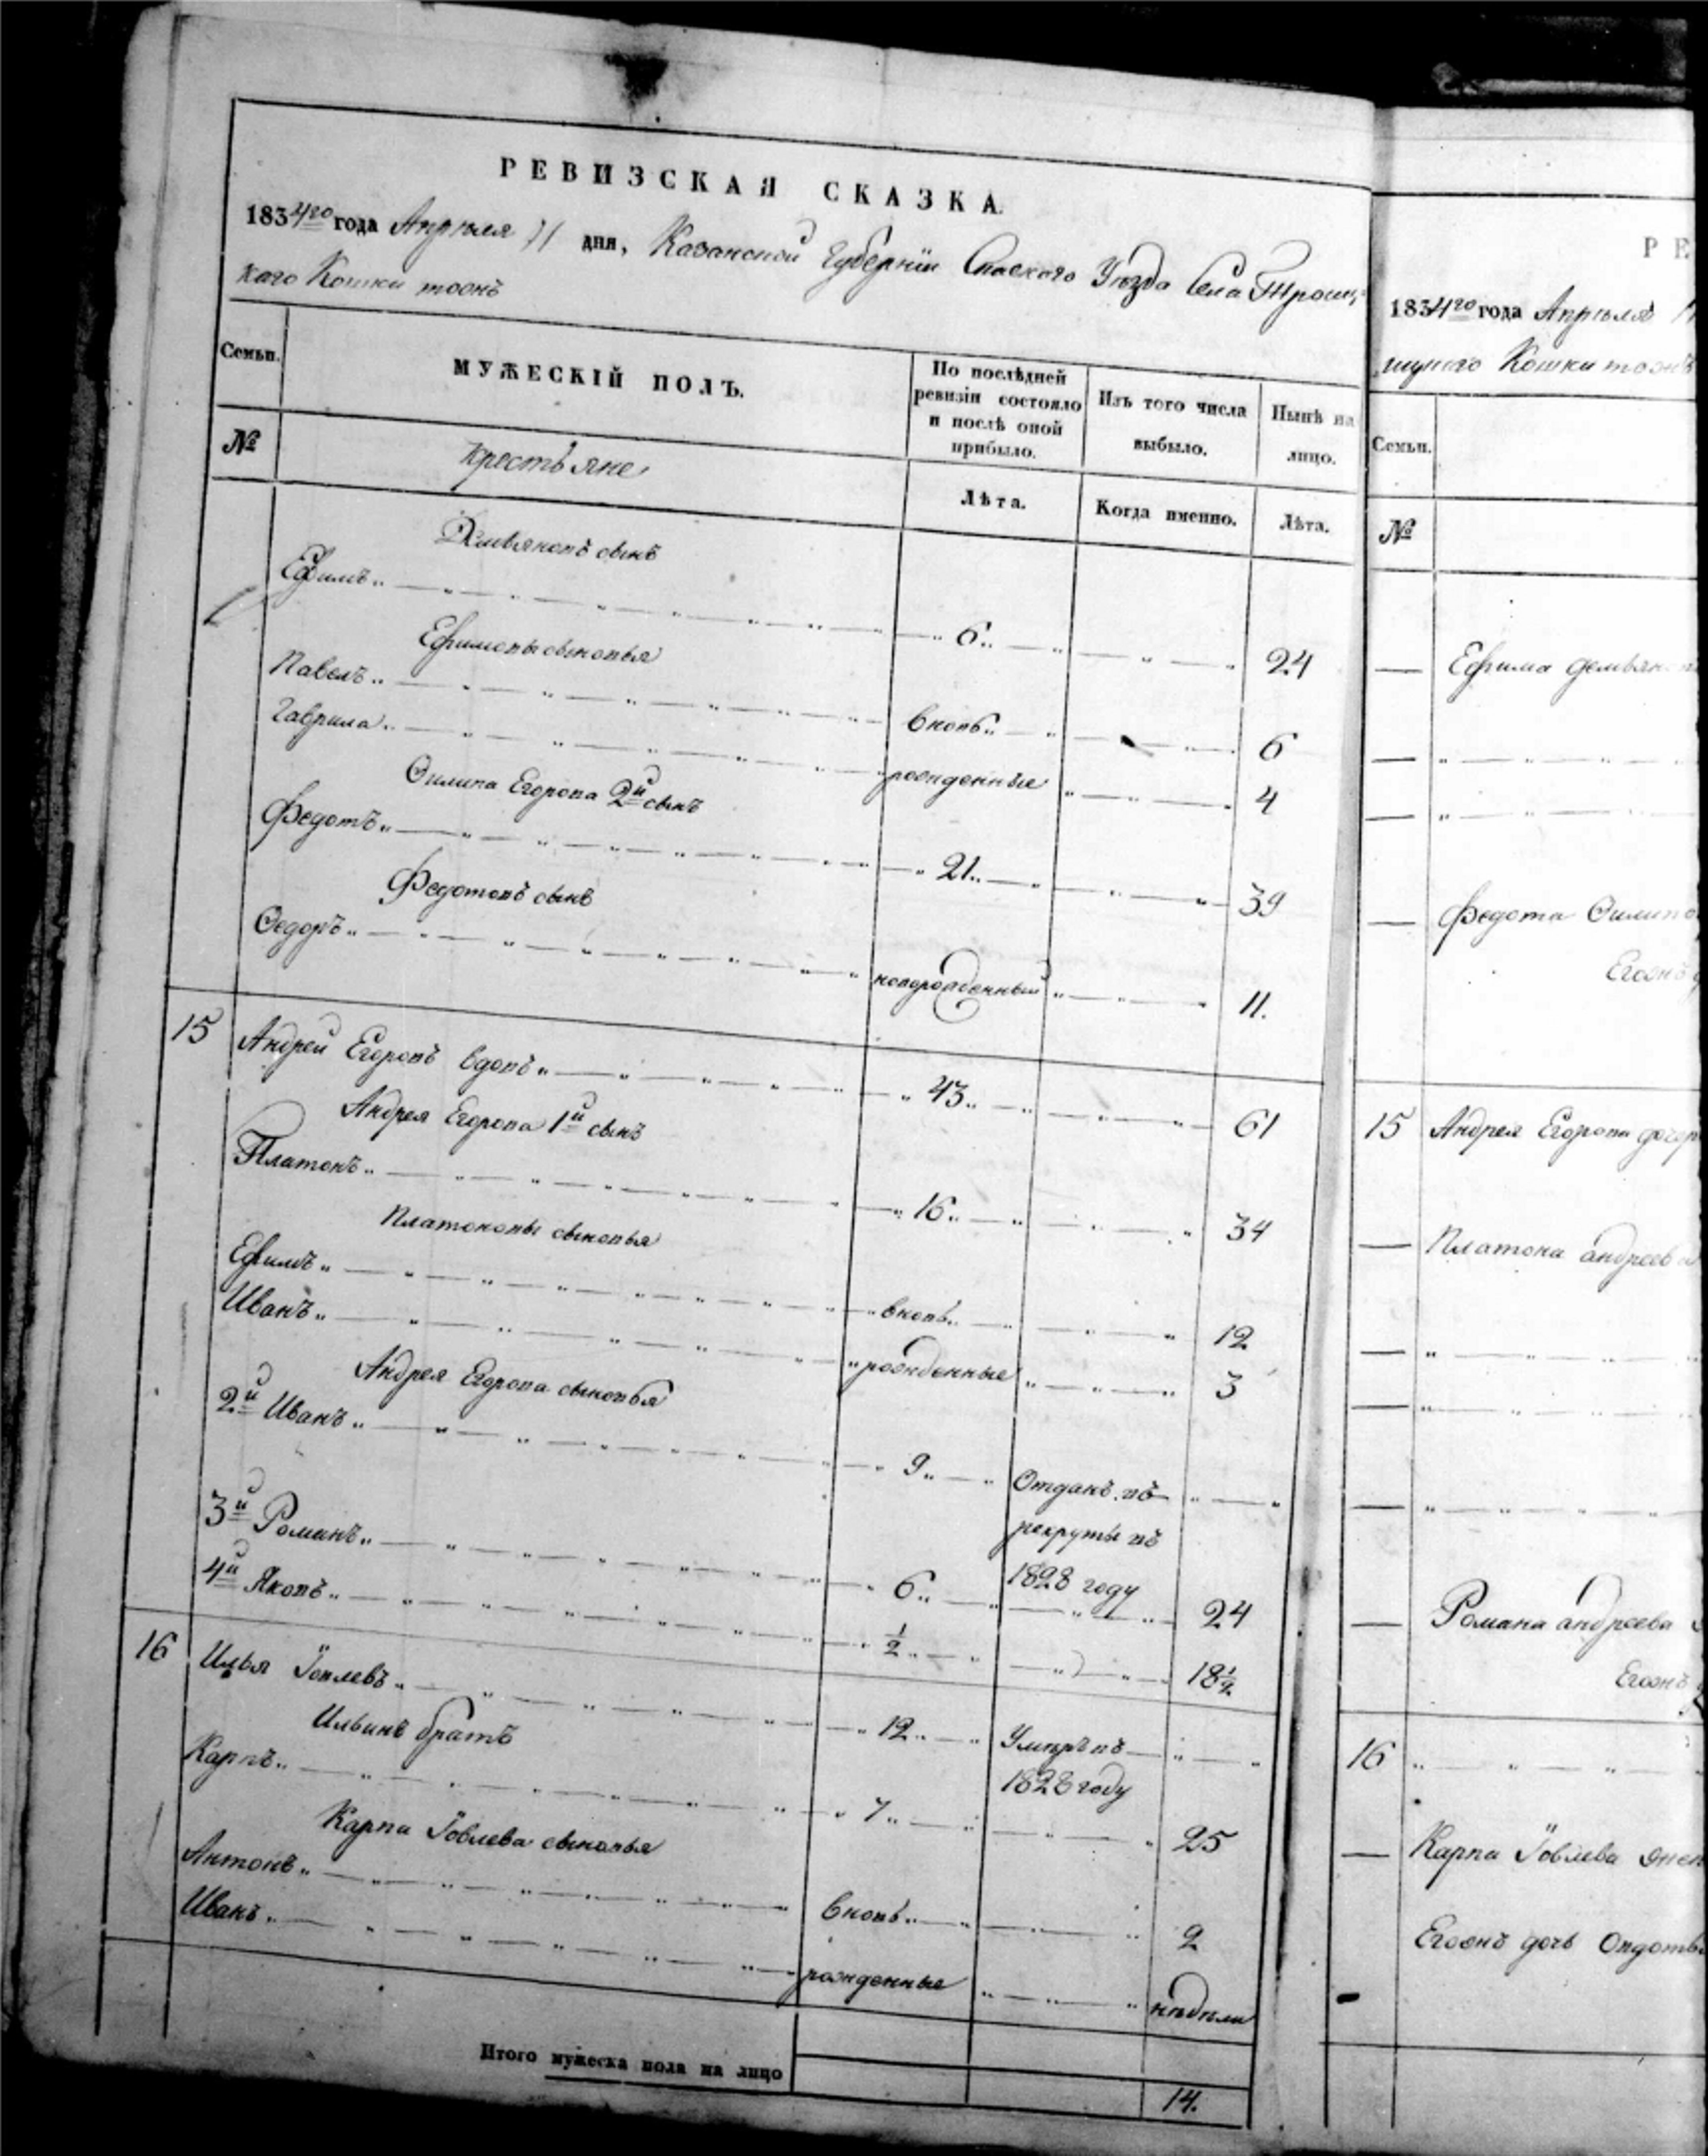 РЕВИЗСКАЯ СКАЗКА
1834го года Апреля 11 дня, Казанской Губернiи Спаскаго Уезда Села Троиц-
каго Кошки тожъ
Семьи.
МУЖЕСКІЙ ПОЛЪ.
По послѣдней ревизіи состояло и послѣ оной прибыло.
Изъ того числа выбыло.
Нынѣ на лицо.
№
Крестьяне
Лѣта.
Когда именно.
Лѣта.
Демьяновъ сынъ
Ефимъ 6 24
Ефимовы сыновья
Павелъ вновь 6
Гаврила рожденные 4
Ѳилипа Егорова 2й сынъ
Федотъ 21 39
Федотовъ сынъ
Ѳедоръ новорожденный 11.
15 Андрей Егоровъ вдовъ 43 61
Андрея Егорова 1й сынъ
Платонъ 16 34
Платоновы сыновья
Ефимъ вновь 12
Иванъ рожденные 3
Андрея Егорова сыновья
2й Иванъ 9 Отданъ въ
рекруты въ
1828 году
3й Романъ 6 24
4й Яковъ 1/2 18 1/2
16 Илья Iовлевъ 12 Умеръ въ
1828 году
Ильинъ братъ
Карпъ 7 25
Карпа Iовлева сыновья
Антонъ вновь 2
Иванъ рожденные недели
Итого мужеска пола на лицо 14.
РЕ
1834го года Апреля
Кошки тожъ
Семьи.
№
Ефима демьян
Федота Ѳилипо
Егожъ
15 Андрея Егорова дочер
Платона андреев
Романа андреева
Егожъ
16
Карпа Iовлева жен
Егожъ дочь Овдоть